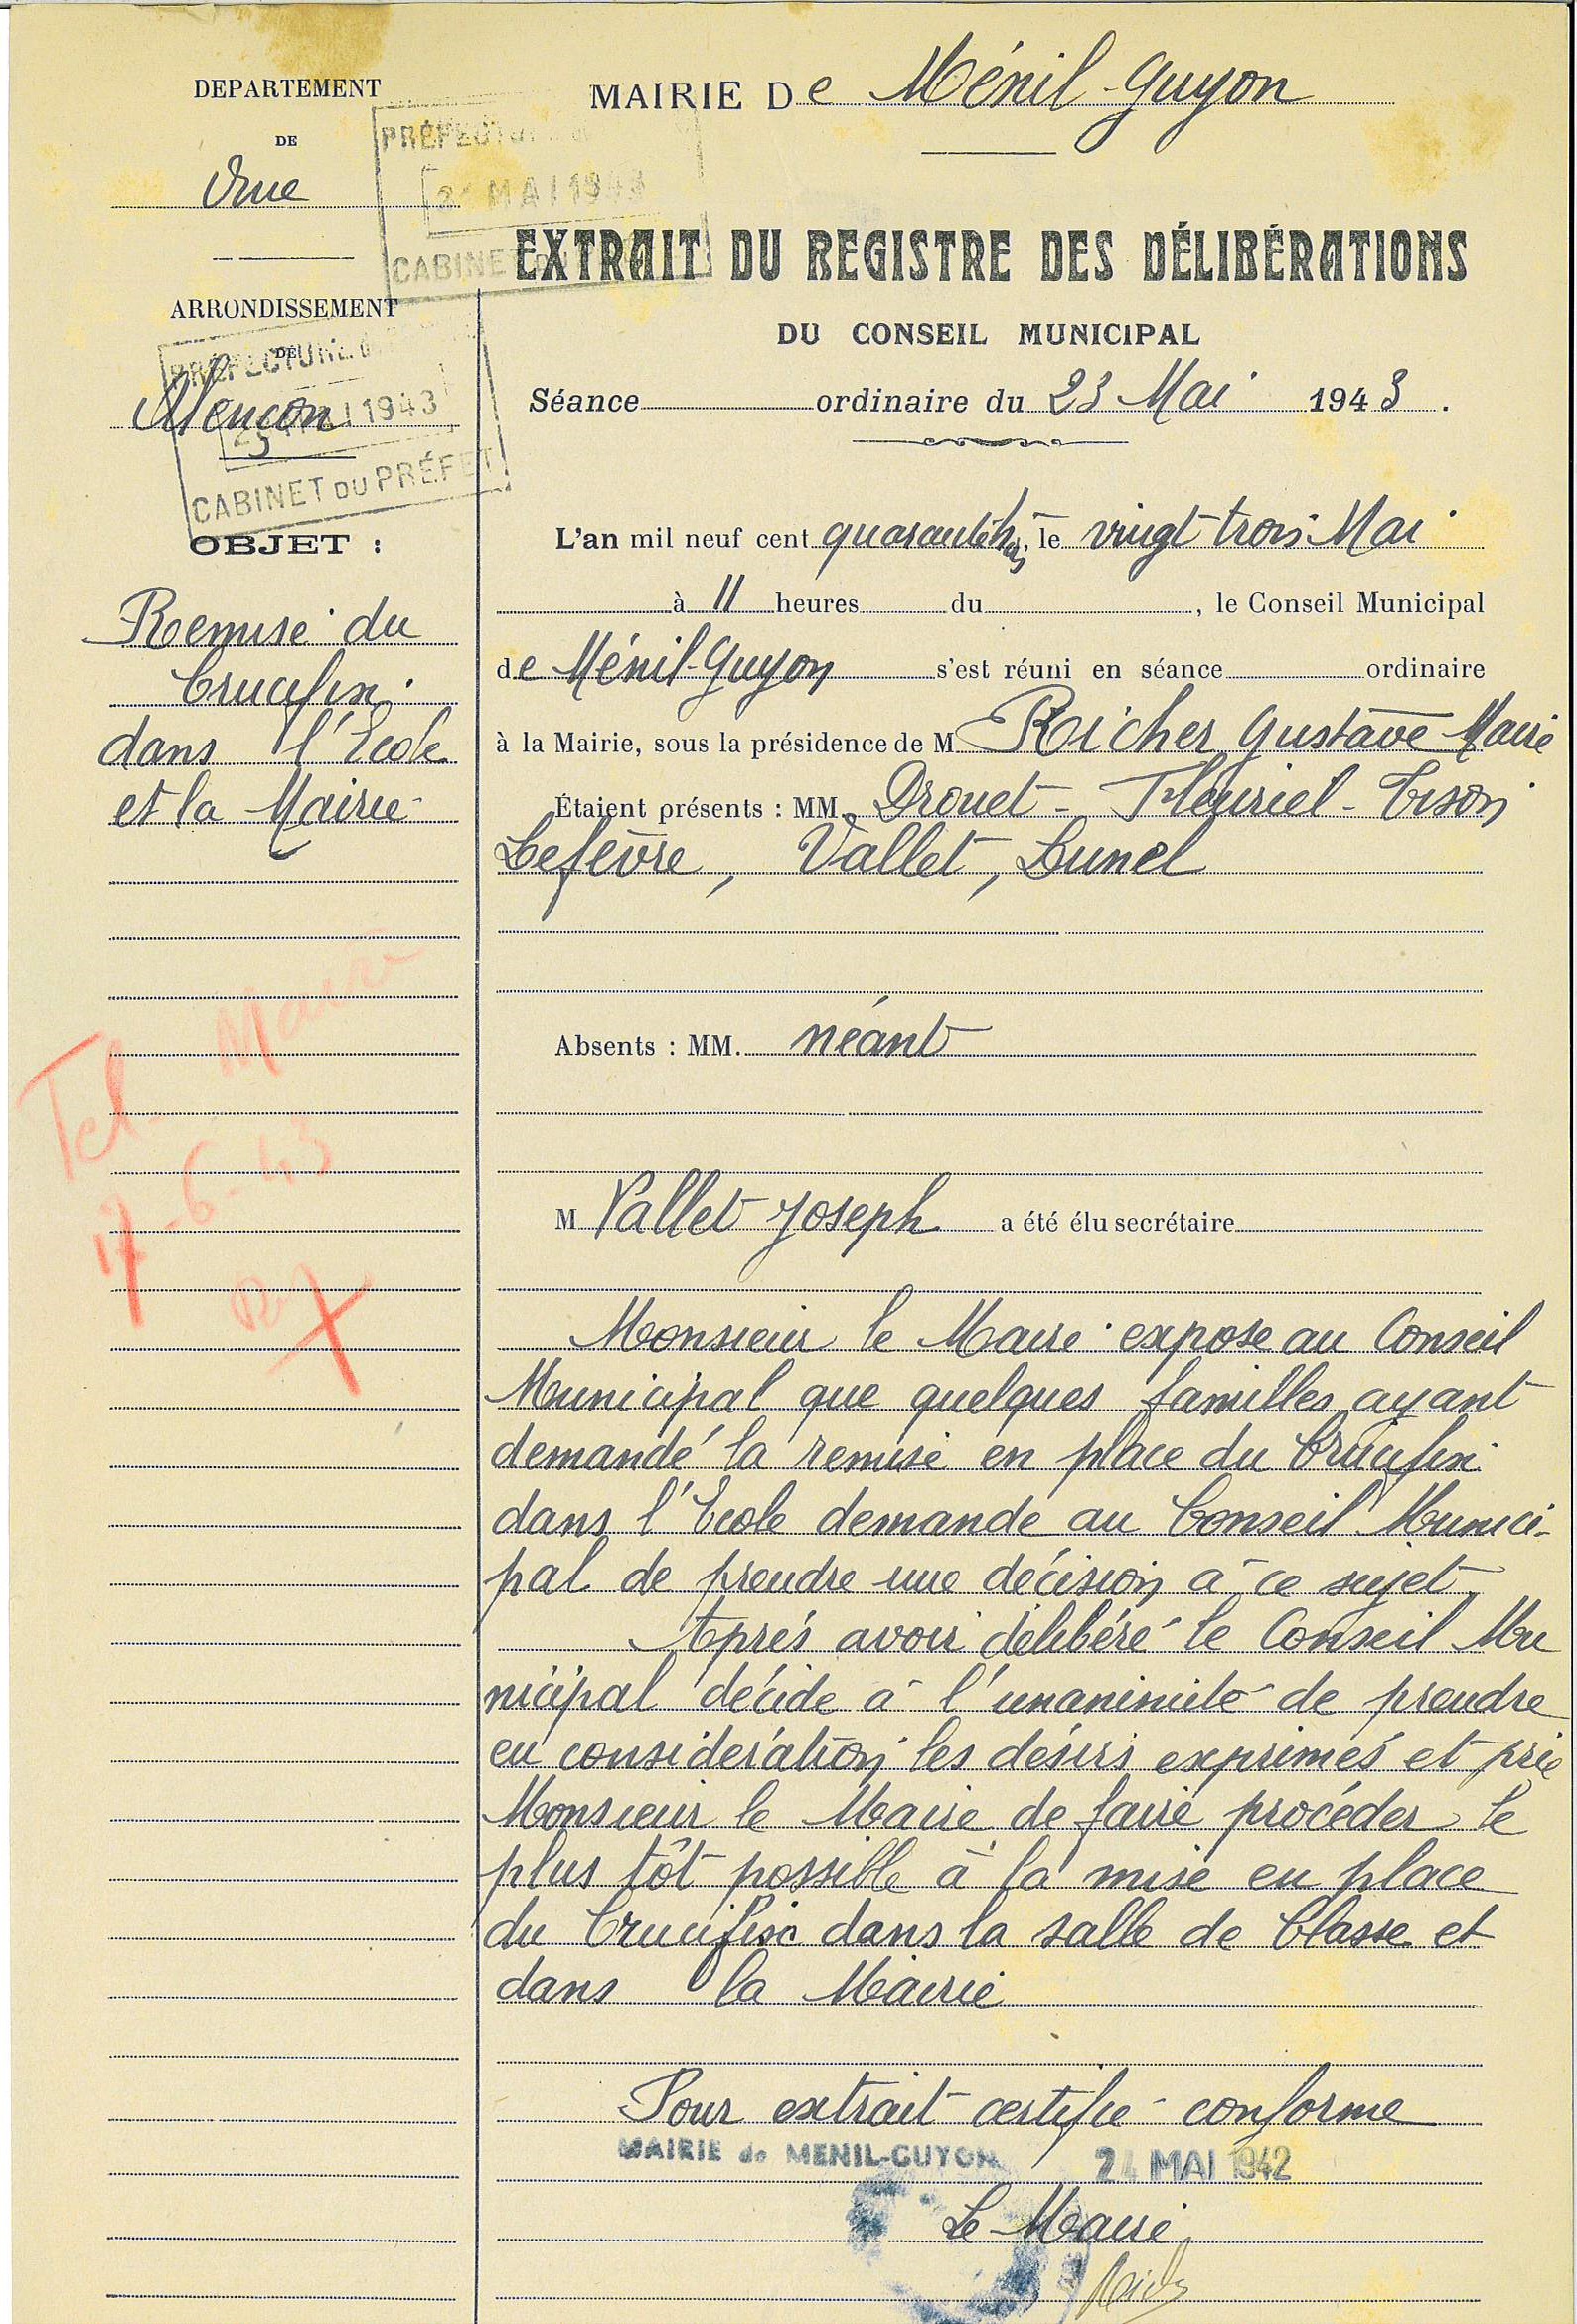 DEPARTEMENT
DE
Orne
ARRONDISSEMENT
DE
Alençon
PRÉFECTURE
MAI 1943
CABINET DU
PRÉFECTURE
1943
CABINET DU PRÉFET
OBJET :
Remise du
Crucifix
dans l'Ecole
et la Mairie
Tel. Mairie
17-6-43
MAIRIE De Ménil-Guyon
EXTRAIT DU REGISTRE DES DÉLIBÉRATIONS
DU CONSEIL MUNICIPAL
Séance ordinaire du 23 Mai 1943.
L'an mil neuf cent quarante trois, le vingt trois Mai
à 11 heures du , le Conseil Municipal
de Ménil-Guyon s'est réuni en séance ordinaire
à la Mairie, sous la présidence de M Richer Gustave Maire
Étaient présents : MM. Drouet - Fleuriel - Tison
Lefèvre, Vallet, Lunel
Absents : MM. néant
M Vallet Joseph a été élu secrétaire
Monsieur le Maire expose au Conseil
Municipal que quelques familles ayant
demandé la remise en place du Crucifix
dans l'Ecole demande au Conseil Munici-
pal de prendre une décision à ce sujet,
Après avoir délibéré le Conseil Mu
nicipal décide à l'unanimité de prendre
en considération les désirs exprimés et prie
Monsieur le Maire de faire procéder le
plus tôt possible à la mise en place
du Crucifix dans la salle de Classe et
dans la Mairie
Pour extrait certifié conforme
MAIRIE de MENIL-GUYON 24 MAI 1942
Le Maire,